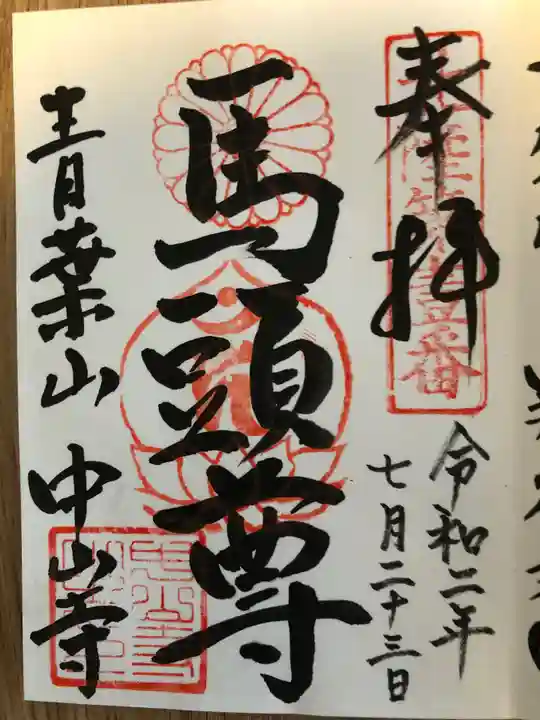 奉拝
令和二年
七月二十三日
馬頭尊
青葉山 中山寺